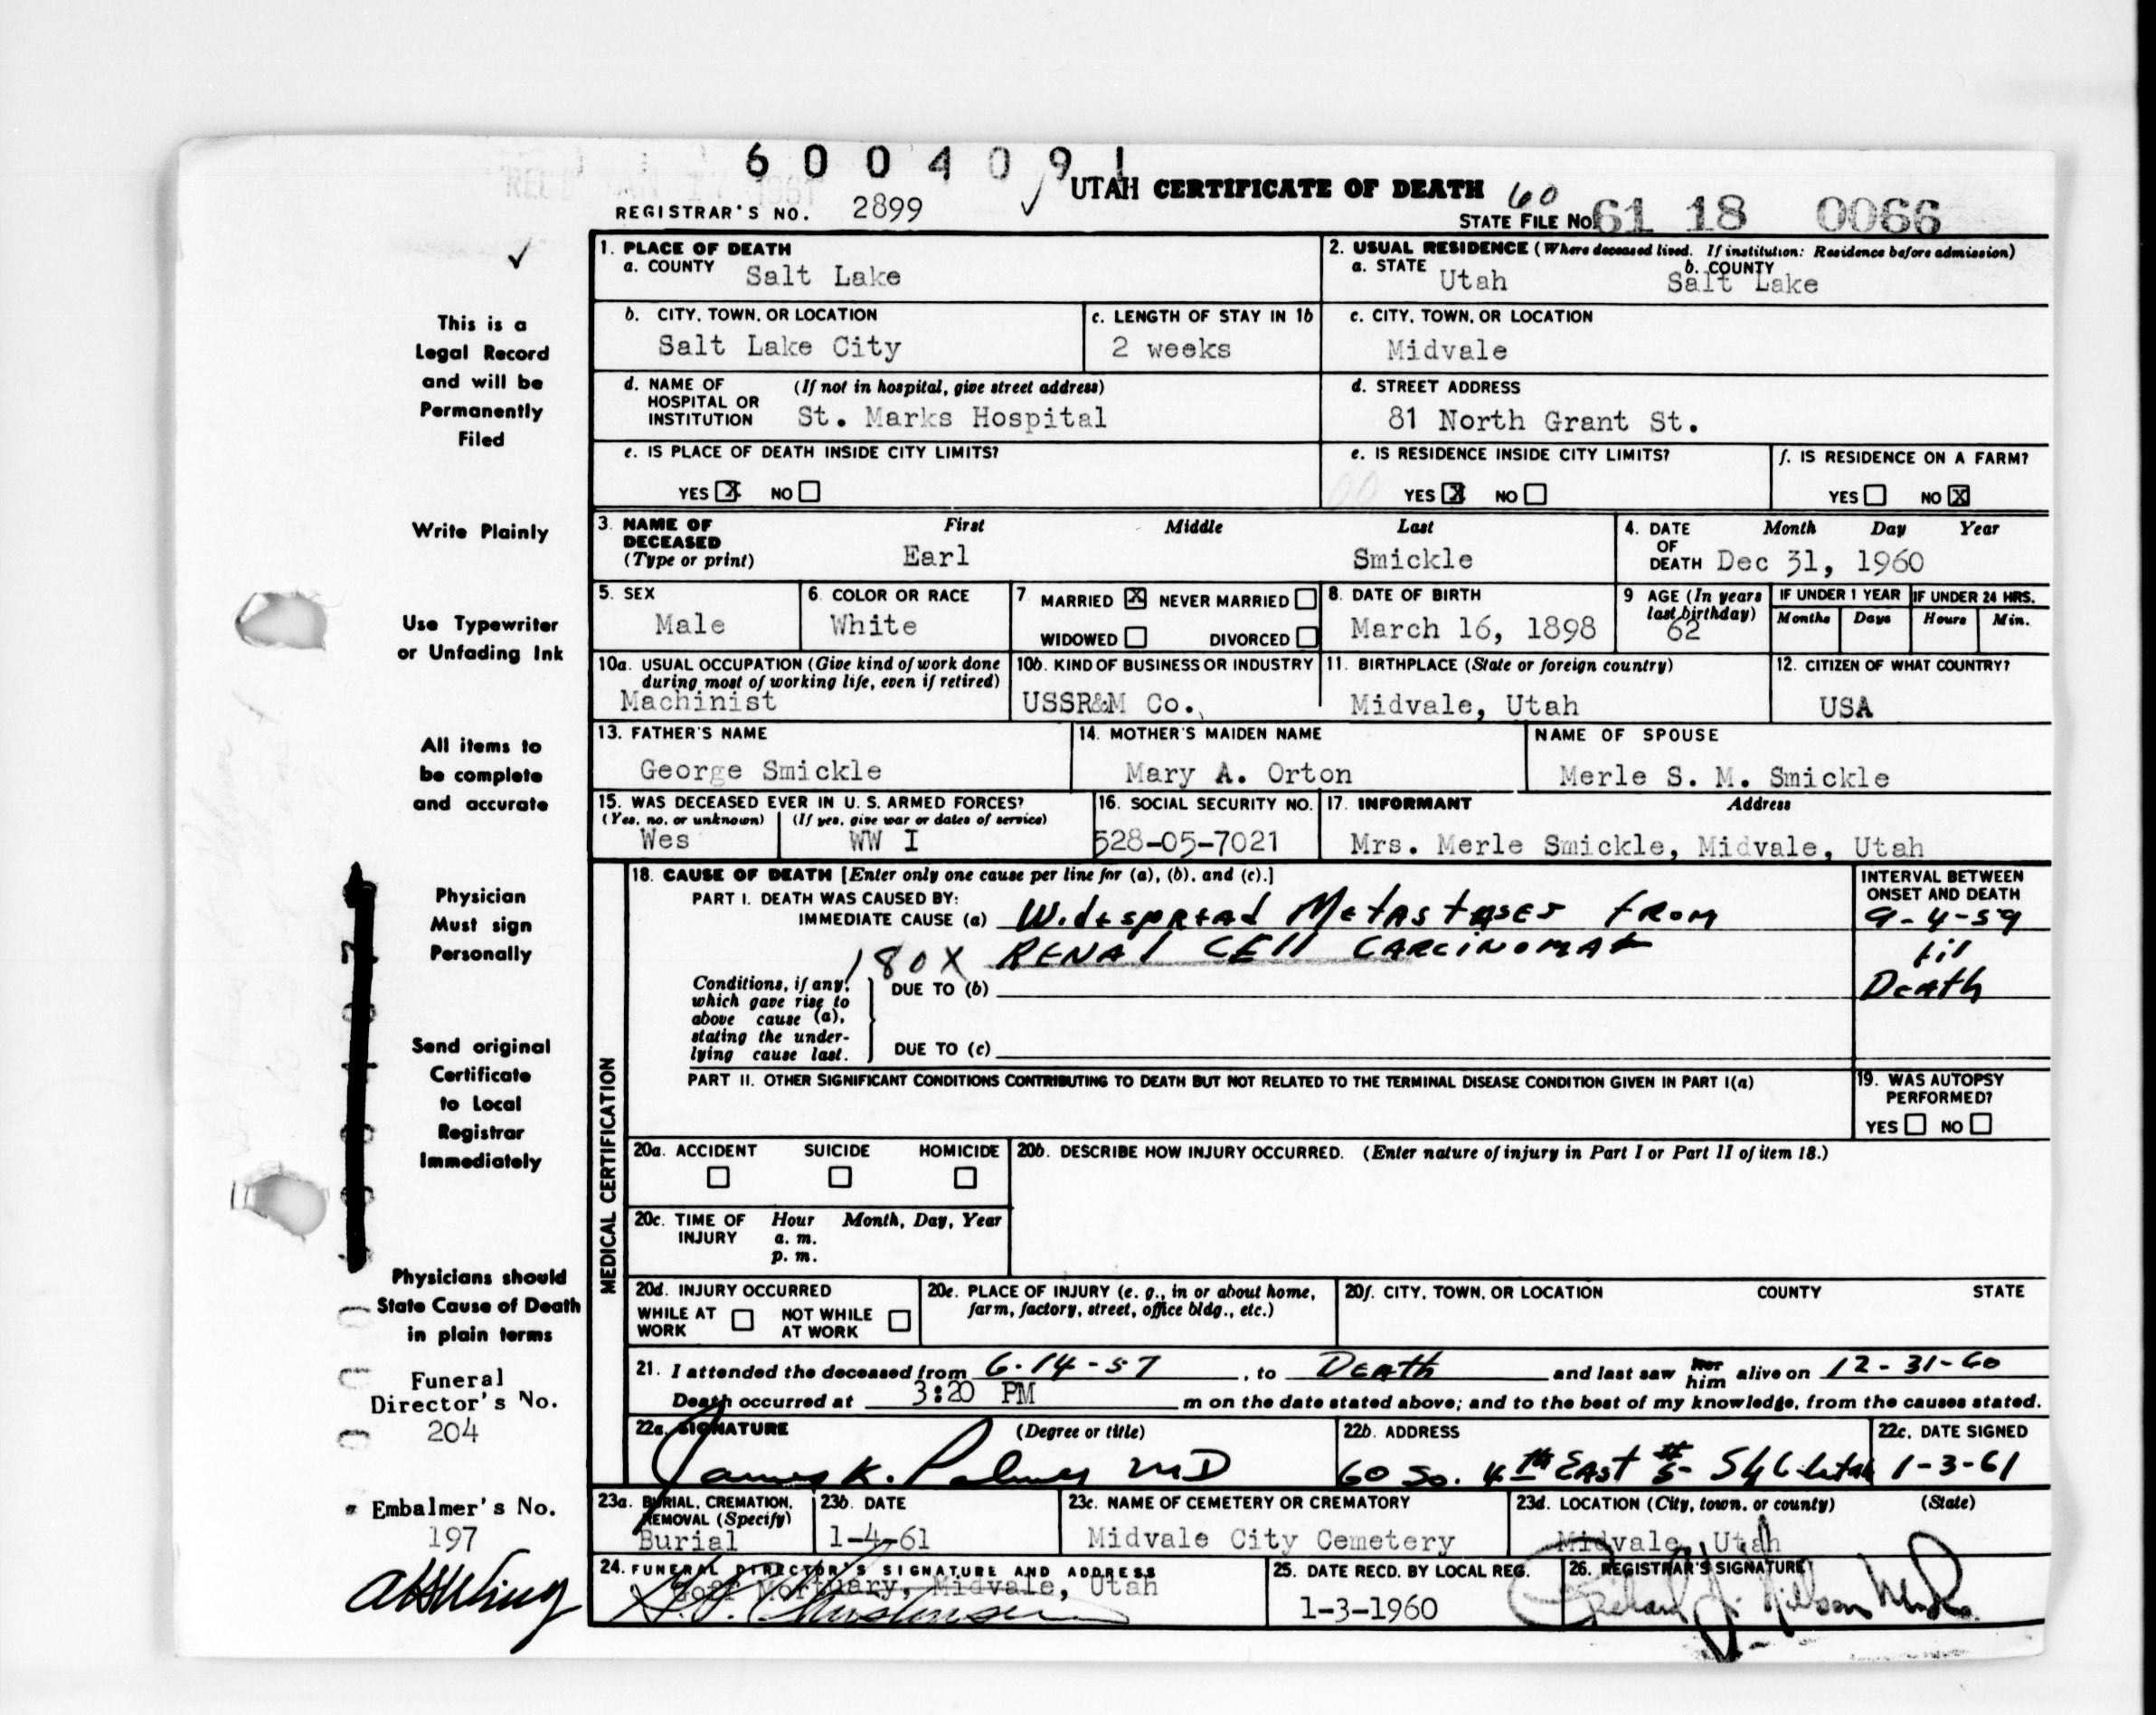 6 0 0 4 0 9 1
REGISTRAR'S NO. 2899
UTAH CERTIFICATE OF DEATH
60
STATE FILE NO. 61 18 0066
This is a
Legal Record
and will be
Permanently
Filed
Write Plainly
Use Typewriter
or Unfading Ink
All items to
be complete
and accurate
Physician
Must sign
Personally
Send original
Certificate
to Local
Registrar
Immediately
Physicians should
State Cause of Death
in plain terms
Funeral
Director's No.
204
Embalmer's No.
197
1. PLACE OF DEATH
a. COUNTY Salt Lake
2. USUAL RESIDENCE (Where deceased lived. If institution: Residence before admission)
a. STATE Utah b. COUNTY Salt Lake
b. CITY, TOWN, OR LOCATION
Salt Lake City
c. LENGTH OF STAY IN 1b
2 weeks
c. CITY, TOWN, OR LOCATION
Midvale
d. NAME OF (If not in hospital, give street address)
HOSPITAL OR
INSTITUTION St. Marks Hospital
d. STREET ADDRESS
81 North Grant St.
e. IS PLACE OF DEATH INSIDE CITY LIMITS?
YES X NO
e. IS RESIDENCE INSIDE CITY LIMITS?
YES X NO
f. IS RESIDENCE ON A FARM?
YES NO X
3. NAME OF DECEASED (Type or print)
First Middle Last
Earl Smickle
4. DATE OF DEATH Month Day Year
Dec 31, 1960
5. SEX
Male
6. COLOR OR RACE
White
7. MARRIED X NEVER MARRIED
WIDOWED DIVORCED
8. DATE OF BIRTH
March 16, 1898
9 AGE (In years
last birthday)
62
IF UNDER 1 YEAR IF UNDER 24 HRS.
Months Days Hours Min.
10a. USUAL OCCUPATION (Give kind of work done
during most of working life, even if retired)
Machinist
10b. KIND OF BUSINESS OR INDUSTRY
USSR&M Co.
11. BIRTHPLACE (State or foreign country)
Midvale, Utah
12. CITIZEN OF WHAT COUNTRY?
USA
13. FATHER'S NAME
George Smickle
14. MOTHER'S MAIDEN NAME
Mary A. Orton
NAME OF SPOUSE
Merle S. M. Smickle
15. WAS DECEASED EVER IN U. S. ARMED FORCES?
(Yes, no, or unknown) (If yes, give war or dates of service)
Wes WW I
16. SOCIAL SECURITY NO.
528-05-7021
17. INFORMANT Address
Mrs. Merle Smickle, Midvale, Utah
MEDICAL CERTIFICATION
18. CAUSE OF DEATH [Enter only one cause per line for (a), (b), and (c).]
PART I. DEATH WAS CAUSED BY:
IMMEDIATE CAUSE (a) Widespread Metastases from
180X RENAL CELL CARCINOMA
Conditions, if any,
which gave rise to
above cause (a),
stating the under-
lying cause last.
DUE TO (b)
DUE TO (c)
INTERVAL BETWEEN
ONSET AND DEATH
9-4-59
til
Death
PART II. OTHER SIGNIFICANT CONDITIONS CONTRIBUTING TO DEATH BUT NOT RELATED TO THE TERMINAL DISEASE CONDITION GIVEN IN PART I(a)
19. WAS AUTOPSY
PERFORMED?
YES NO
20a. ACCIDENT SUICIDE HOMICIDE
20b. DESCRIBE HOW INJURY OCCURRED. (Enter nature of injury in Part I or Part II of item 18.)
20c. TIME OF INJURY Hour Month, Day, Year
a. m.
p. m.
20d. INJURY OCCURRED
WHILE AT WORK NOT WHILE AT WORK
20e. PLACE OF INJURY (e. g., in or about home,
farm, factory, street, office bldg., etc.)
20f. CITY, TOWN, OR LOCATION COUNTY STATE
21. I attended the deceased from 6-14-57, to Death and last saw her him alive on 12-31-60
Death occurred at 3:20 PM m on the date stated above; and to the best of my knowledge, from the causes stated.
22a. SIGNATURE (Degree or title)
James K. Palmer MD
22b. ADDRESS
60 So. 4th East #5 SLC Utah
22c. DATE SIGNED
1-3-61
23a. BURIAL, CREMATION,
REMOVAL (Specify)
Burial
23b. DATE
1-4-61
23c. NAME OF CEMETERY OR CREMATORY
Midvale City Cemetery
23d. LOCATION (City, town, or county) (State)
Midvale, Utah
24. FUNERAL DIRECTOR'S SIGNATURE AND ADDRESS
Goff Mortuary, Midvale, Utah
25. DATE RECD. BY LOCAL REG.
1-3-1960
26. REGISTRAR'S SIGNATURE